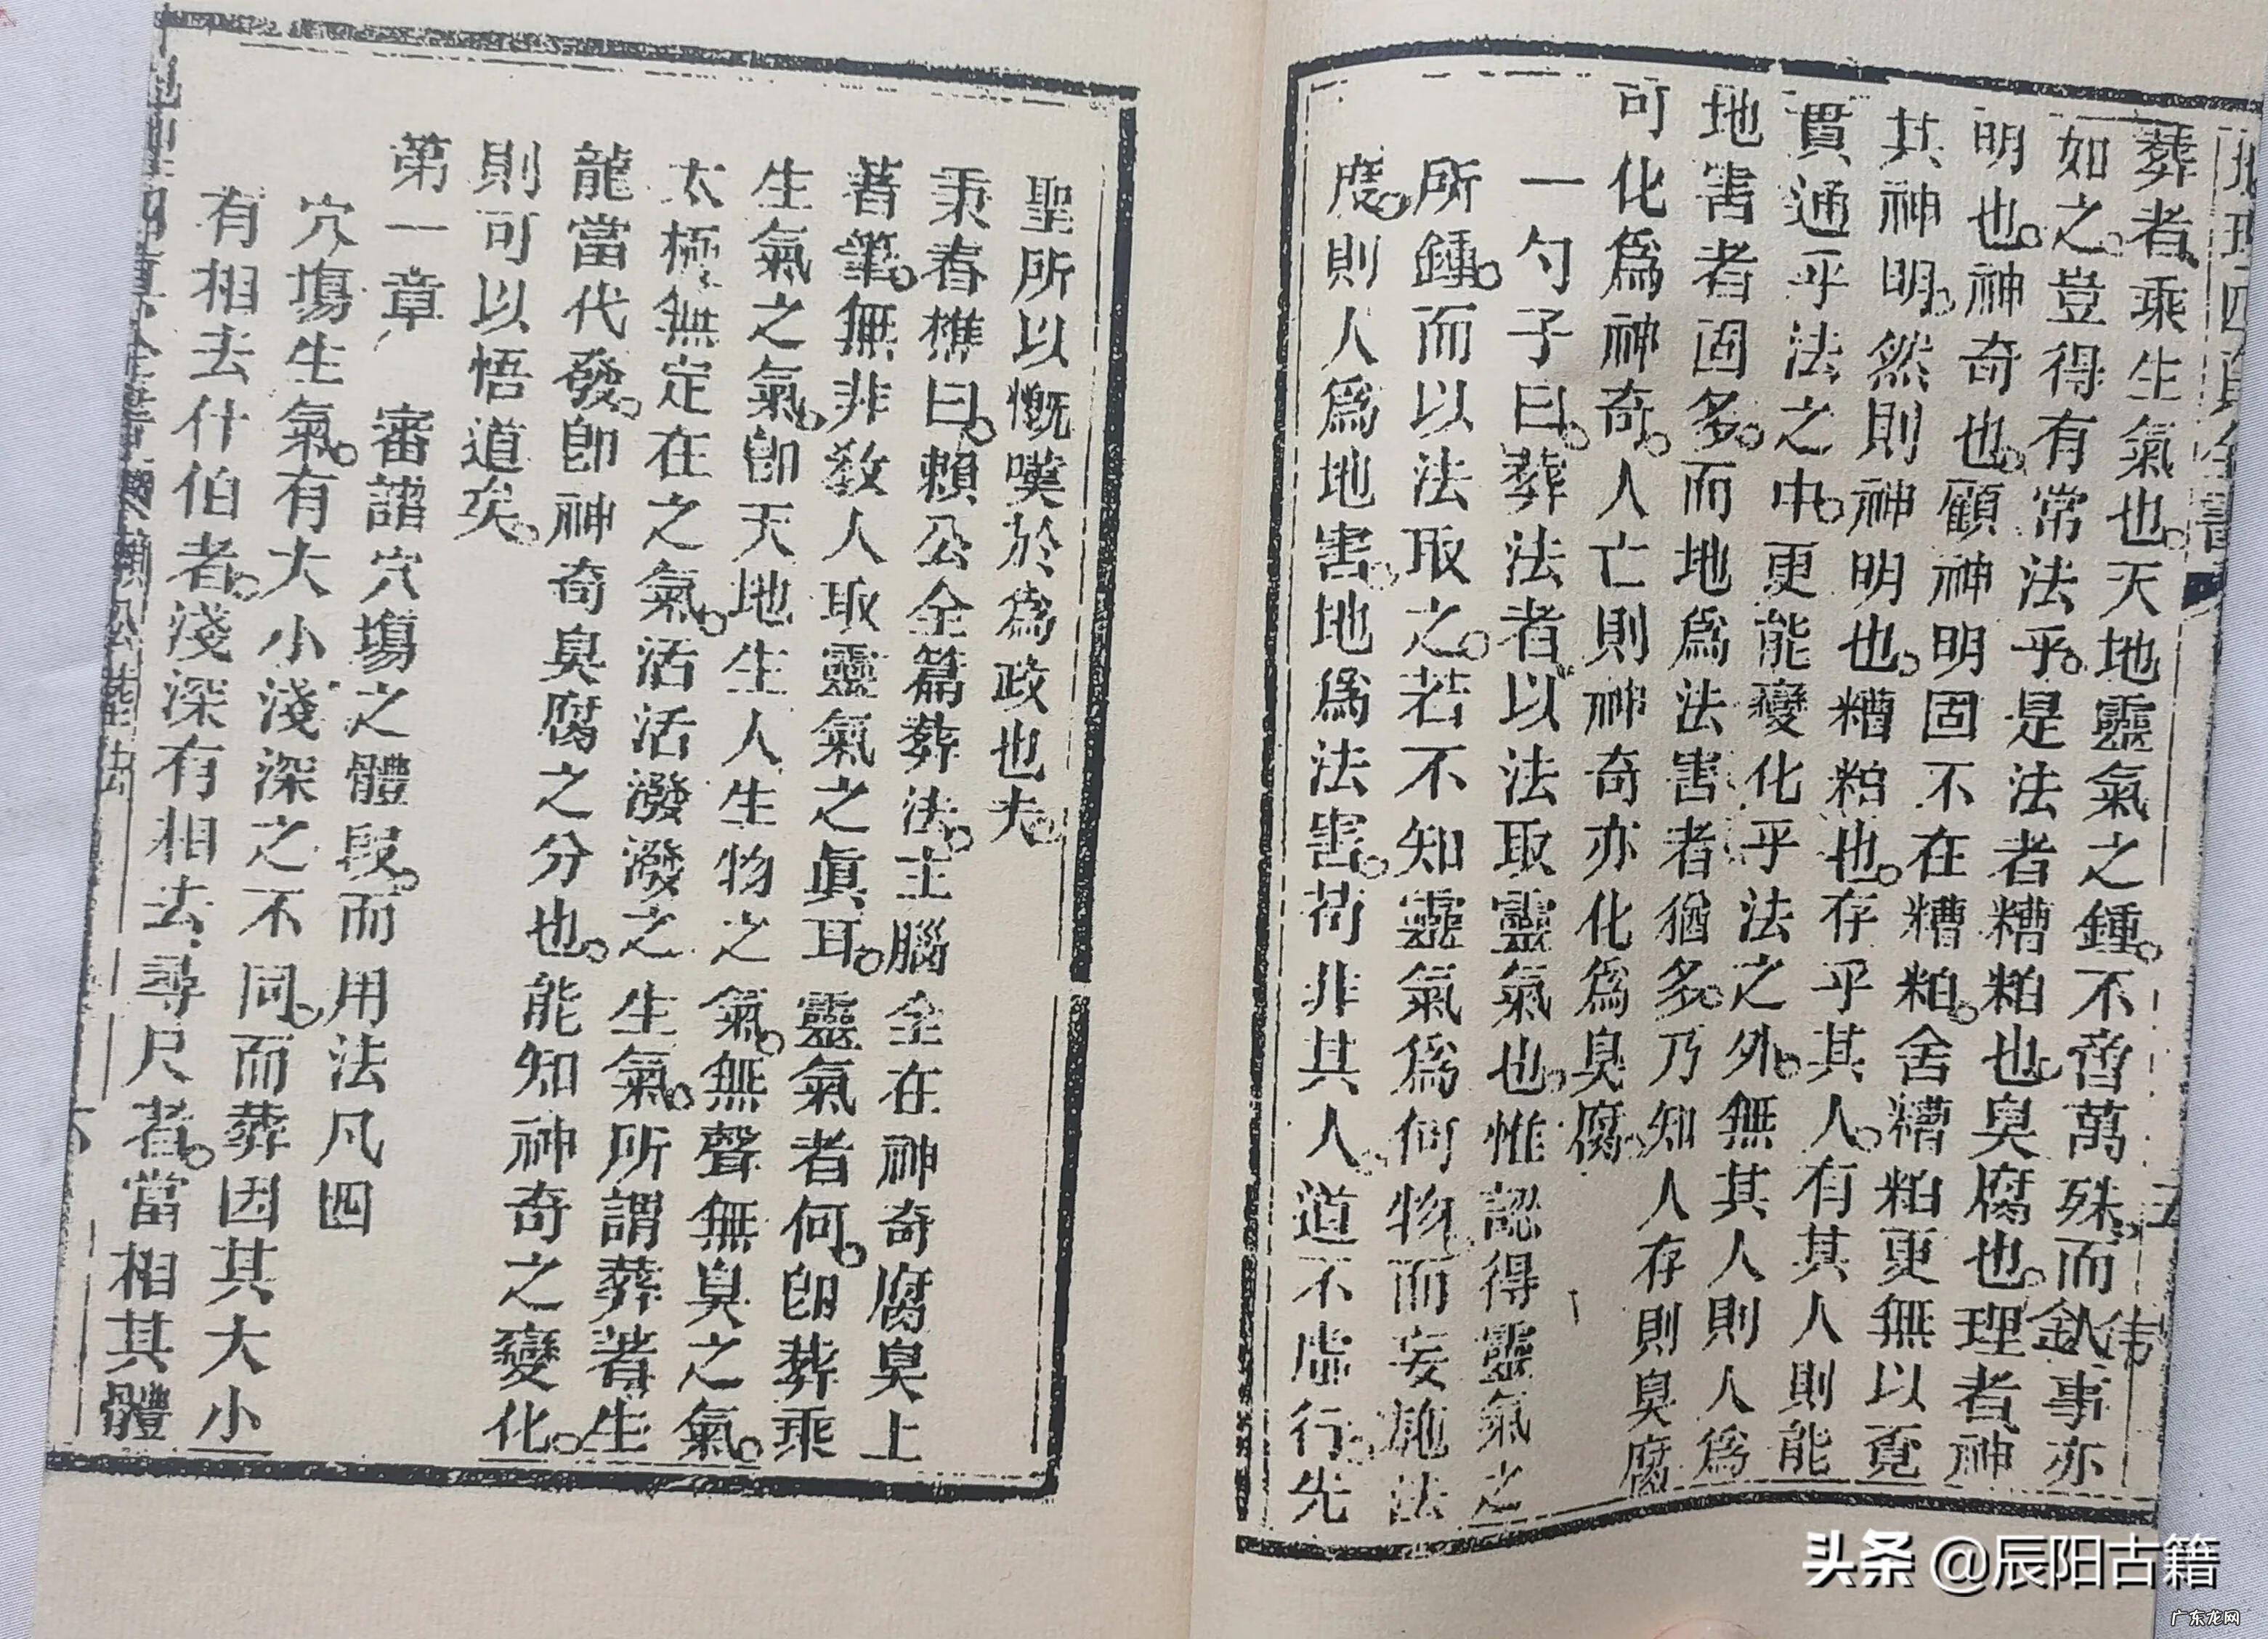 葬者乘生氣也天地靈氣之鍾不齊萬殊而欽事亦
如之豈得有常法乎是法者糟粕也臭腐也理者神
明也神奇也顧神明固不在糟粕舍糟粕更無以覔
其神明然則神明也糟粕也存乎其人有其人則能
貫通乎法之中更能變化乎法之外無其人則人爲
地害者固多而地爲法害者猶多乃知人存則臭腐
可化爲神奇人亡則神奇亦化爲臭腐
一勺子曰葬法者以法取靈氣也惟認得靈氣之
所鍾而以法取之若不知靈氣爲何物而妄施法
度則人爲地害地爲法害苟非其人道不虛行先
聖所以慨嘆於爲政也夫
秉春樵曰賴公全篇葬法主腦全在神奇腐臭上
著筆無非教人取靈氣之眞耳靈氣者何卽葬乘
生氣之氣卽天地生人生物之氣無聲無臭之氣
太極無定在之氣活活潑潑之生氣所謂葬著生
龍當代發卽神奇臭腐之分也能知神奇之變化
則可以悟道矣
第一章 審諳穴塲之體段而用法凡四
穴塲生氣有大小淺深之不同而葬因其大小
有相去什伯者淺深有相去尋尺者當相其體
賴公葬法
头条 @辰阳古籍
广东龙网